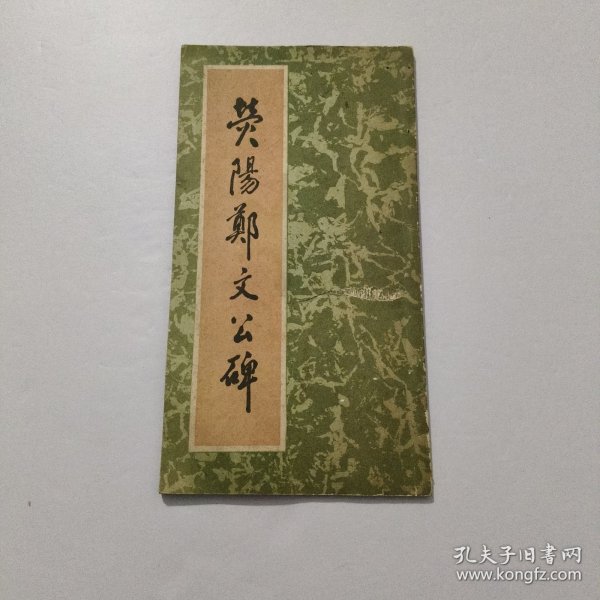 荧陽鄭文公碑
孔夫子旧書网
www.kongfz.com